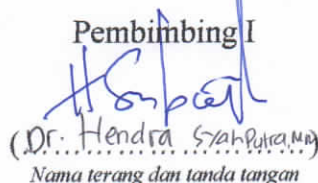 Pembimbing I
(Dr. Hendra Syahputra, MM)
Nama terang dan tanda tangan